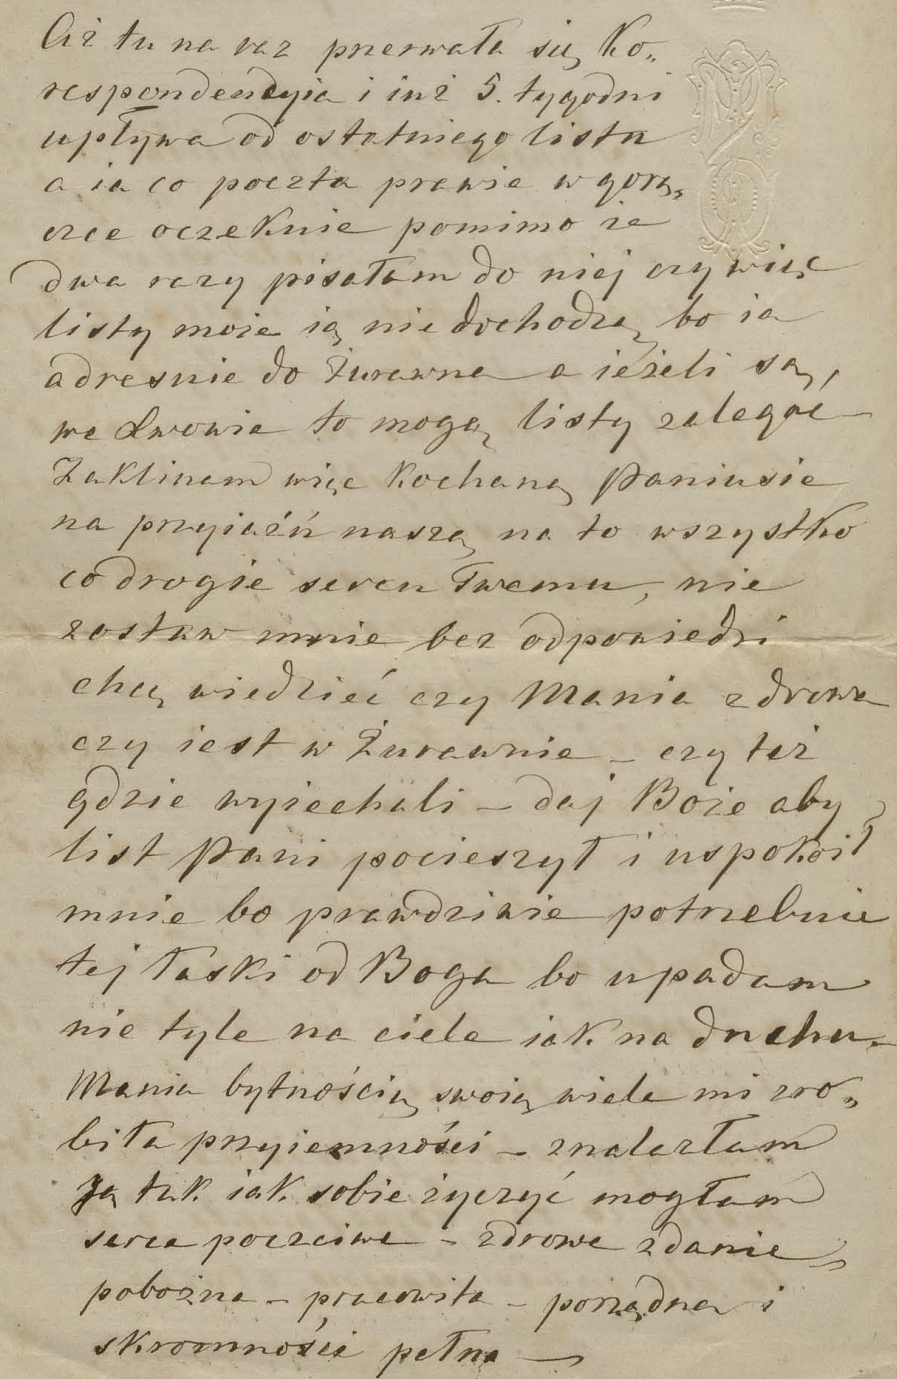 Aż tu na raz przerwała się Ko„
respondencyia i iuż 5. tygodni
upływa od ostatniego listu
a ia co poczta prawie w gorą„
czce oczekuie pomimo że
dwa razy pisałam do niej czy więc
listy moie ią nie dochodzą bo ia
adresuie do Żurawna a ieżeli są,
we Lwowie to mogą listy zalegać –
Zaklinam więc Kochaną Paniusie
na przyiaźń naszą na to wszystko
co drogie sercu Twemu, nie
zostaw mnie bez odpowiedzi
chcę wiedzieć czy Mania zdrowa
czy iest w Żurawnie – czy też
gdzie wyiechali – daj Boże aby
list Pani pocieszył i uspokoił
mnie bo prawdziwie potrzebuie
tej łaski od Boga bo upadam
nie tyle na ciele iak na duchu –
Mania bytnością swoią wiele mi zro„
biła przyiemności – znalazłam
Ją tak iak sobie życzyć mogłam
serce poczciwe – zdrowe zdanie
pobożna – pracowita – porządna i
skromności pełna –